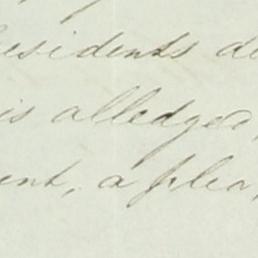 esidents de
is alledged,
ent, a plea,